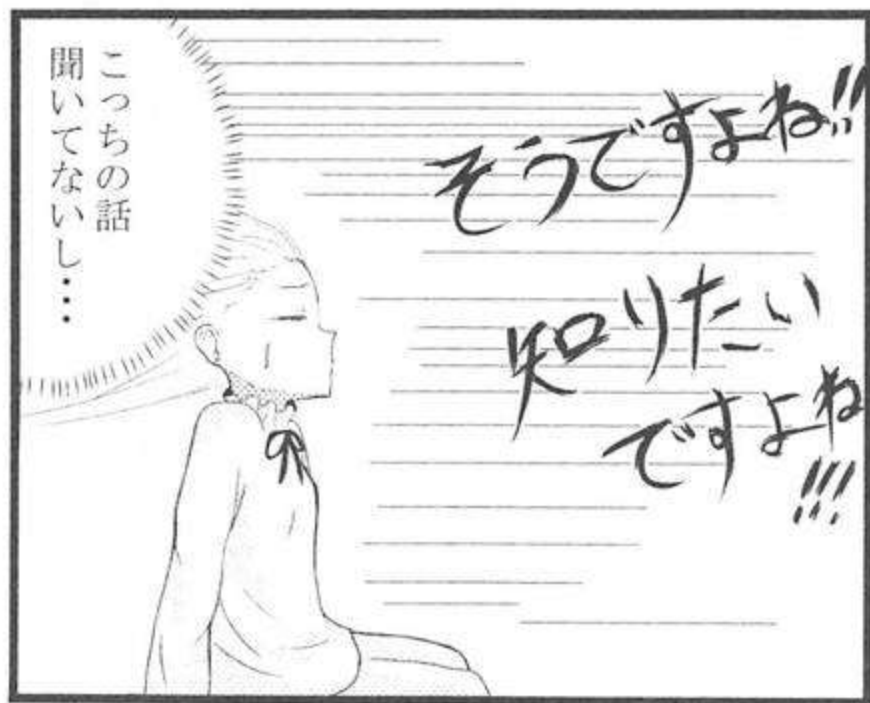 そうですよね!!
知りたい
ですよね
!!!
こっちの話
聞いてないし・・・